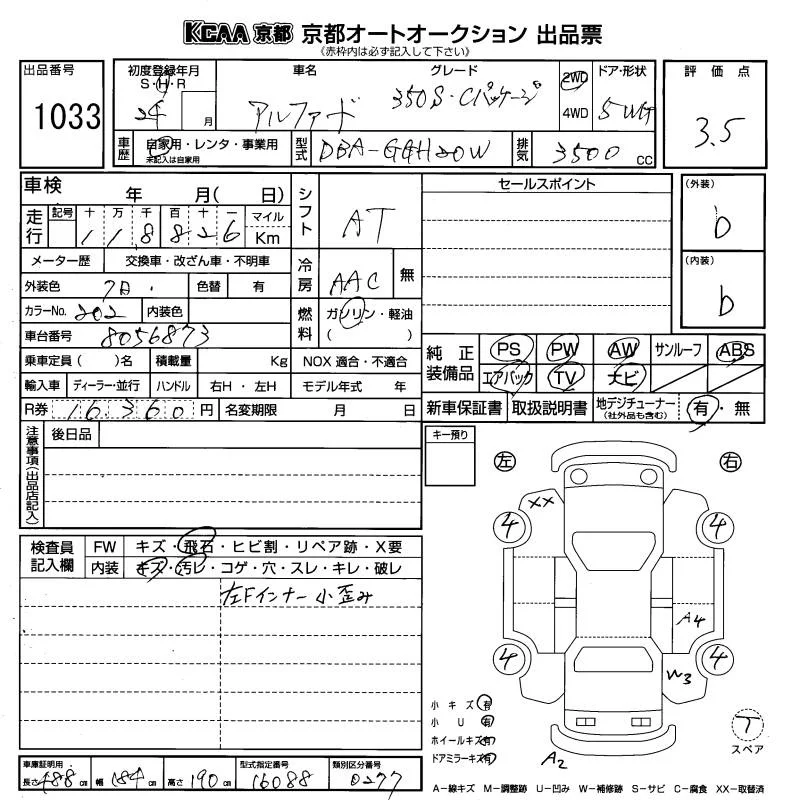 KCAA 京都 京都オートオークション 出品票
(赤枠内は必ず記入して下さい)
出品番号
1033
初度登録年月
S・H・R
24 月
車名
アルファード
グレード
350S・Cパッケージ
2WD
4WD
ドア・形状
5 WG
評価点
3.5
車歴
自家用・レンタ・事業用
未記入は自家用
型式
DBA-GGH20W
排気
3500 CC
車検
年 月( 日)
シフト
AT
セールスポイント
(外装)
b
(内装)
b
走行
記号 十 万 千 百 十 一 マイル
1 1 8 8 2 6 Km
メーター歴 交換車・改ざん車・不明車
冷房
AAC
無
外装色
色替 有
カラーNo. 202 内装色
燃料
ガソリン・軽油
( )
車台番号 8056873
乗車定員( )名 積載量 Kg NOX 適合・不適合
輸入車 ディーラー・並行 ハンドル 右H・左H モデル年式 年
R券 16360円 名変期限 月 日
純正装備品
PS PW AW サンルーフ ABS
エアバック TV ナビ
新車保証書 取扱説明書 地デジチューナー(社外品も含む) 有・無
注意事項(出品店記入)
後日品
キー預り
左 右
XX
4 4
4 4
A4
W3
A2
検査員記入欄
FW キズ・飛石・ヒビ割・リペア跡・X要
内装 キズ・汚レ・コゲ・穴・スレ・キレ・破レ
左Fインナー小歪み
小キズ 有
小U 有
ホイールキズ 有
ドアミラーキズ 有
T
スペア
車庫証明用
長さ 488 cm 幅 184 cm 高さ 190 cm
型式指定番号
16088
類別区分番号
0277
A−線キズ M−調整跡 U−凹み W−補修跡 S−サビ C−腐食 XX−取替済